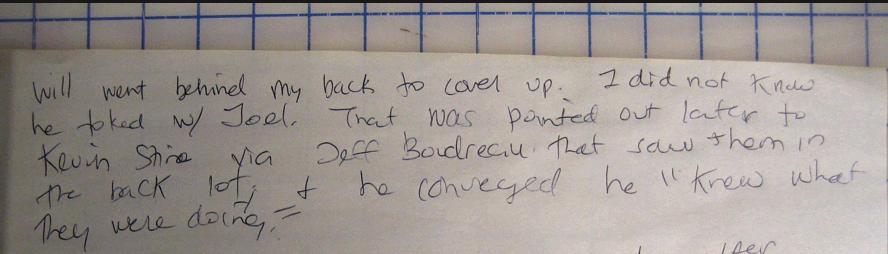 Will went behind my back to cover up. I did not know
he toked w/ Joel. That was pointed out later to
Kevin Stine via Jeff Boudreau that saw them in
the back lot, & he conveyed he "knew what
they were doing."